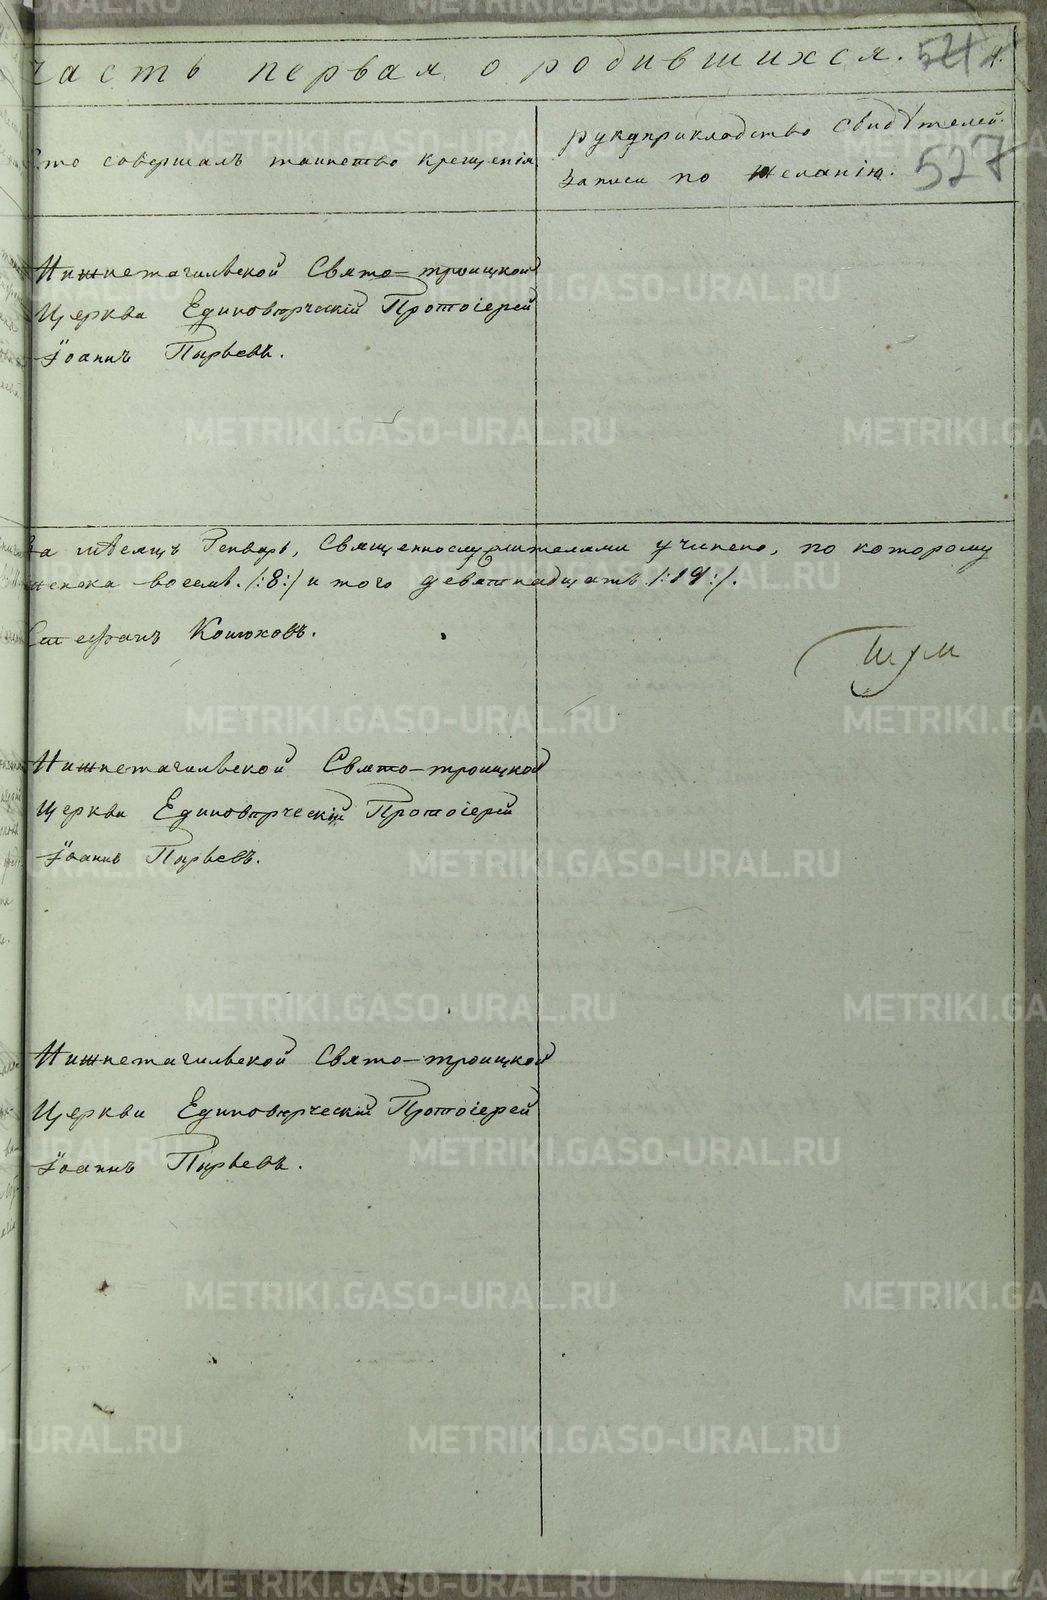 часть первая о родившихся.
527
Кто совершалъ таинство крещенія
рукоприкладство свидѣтелей
записи по желанію.
Нижнетагильской Свято-троицкой
Церкви Единовѣрческій Протоіерей
Іоаннъ Пырьевъ.
За мѣсяцъ Генварь, Священнослужителями учинено, по которому
женска восемь /:8:/ и того девятнадцать /:19:/.
Стефанъ Конюховъ.
Нижнетагильской Свято-троицкой
Церкви Единовѣрческій Протоіерей
Іоаннъ Пырьевъ.
Нижнетагильской Свято-троицкой
Церкви Единовѣрческій Протоіерей
Іоаннъ Пырьевъ.
METRIKI.GASO-URAL.RU